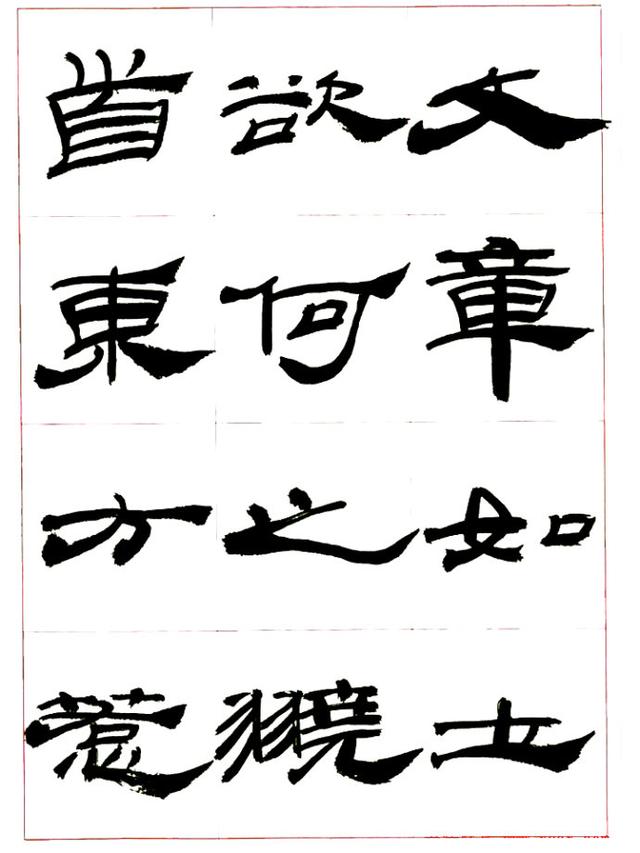 文章如土
欲何之翹
首東方惹